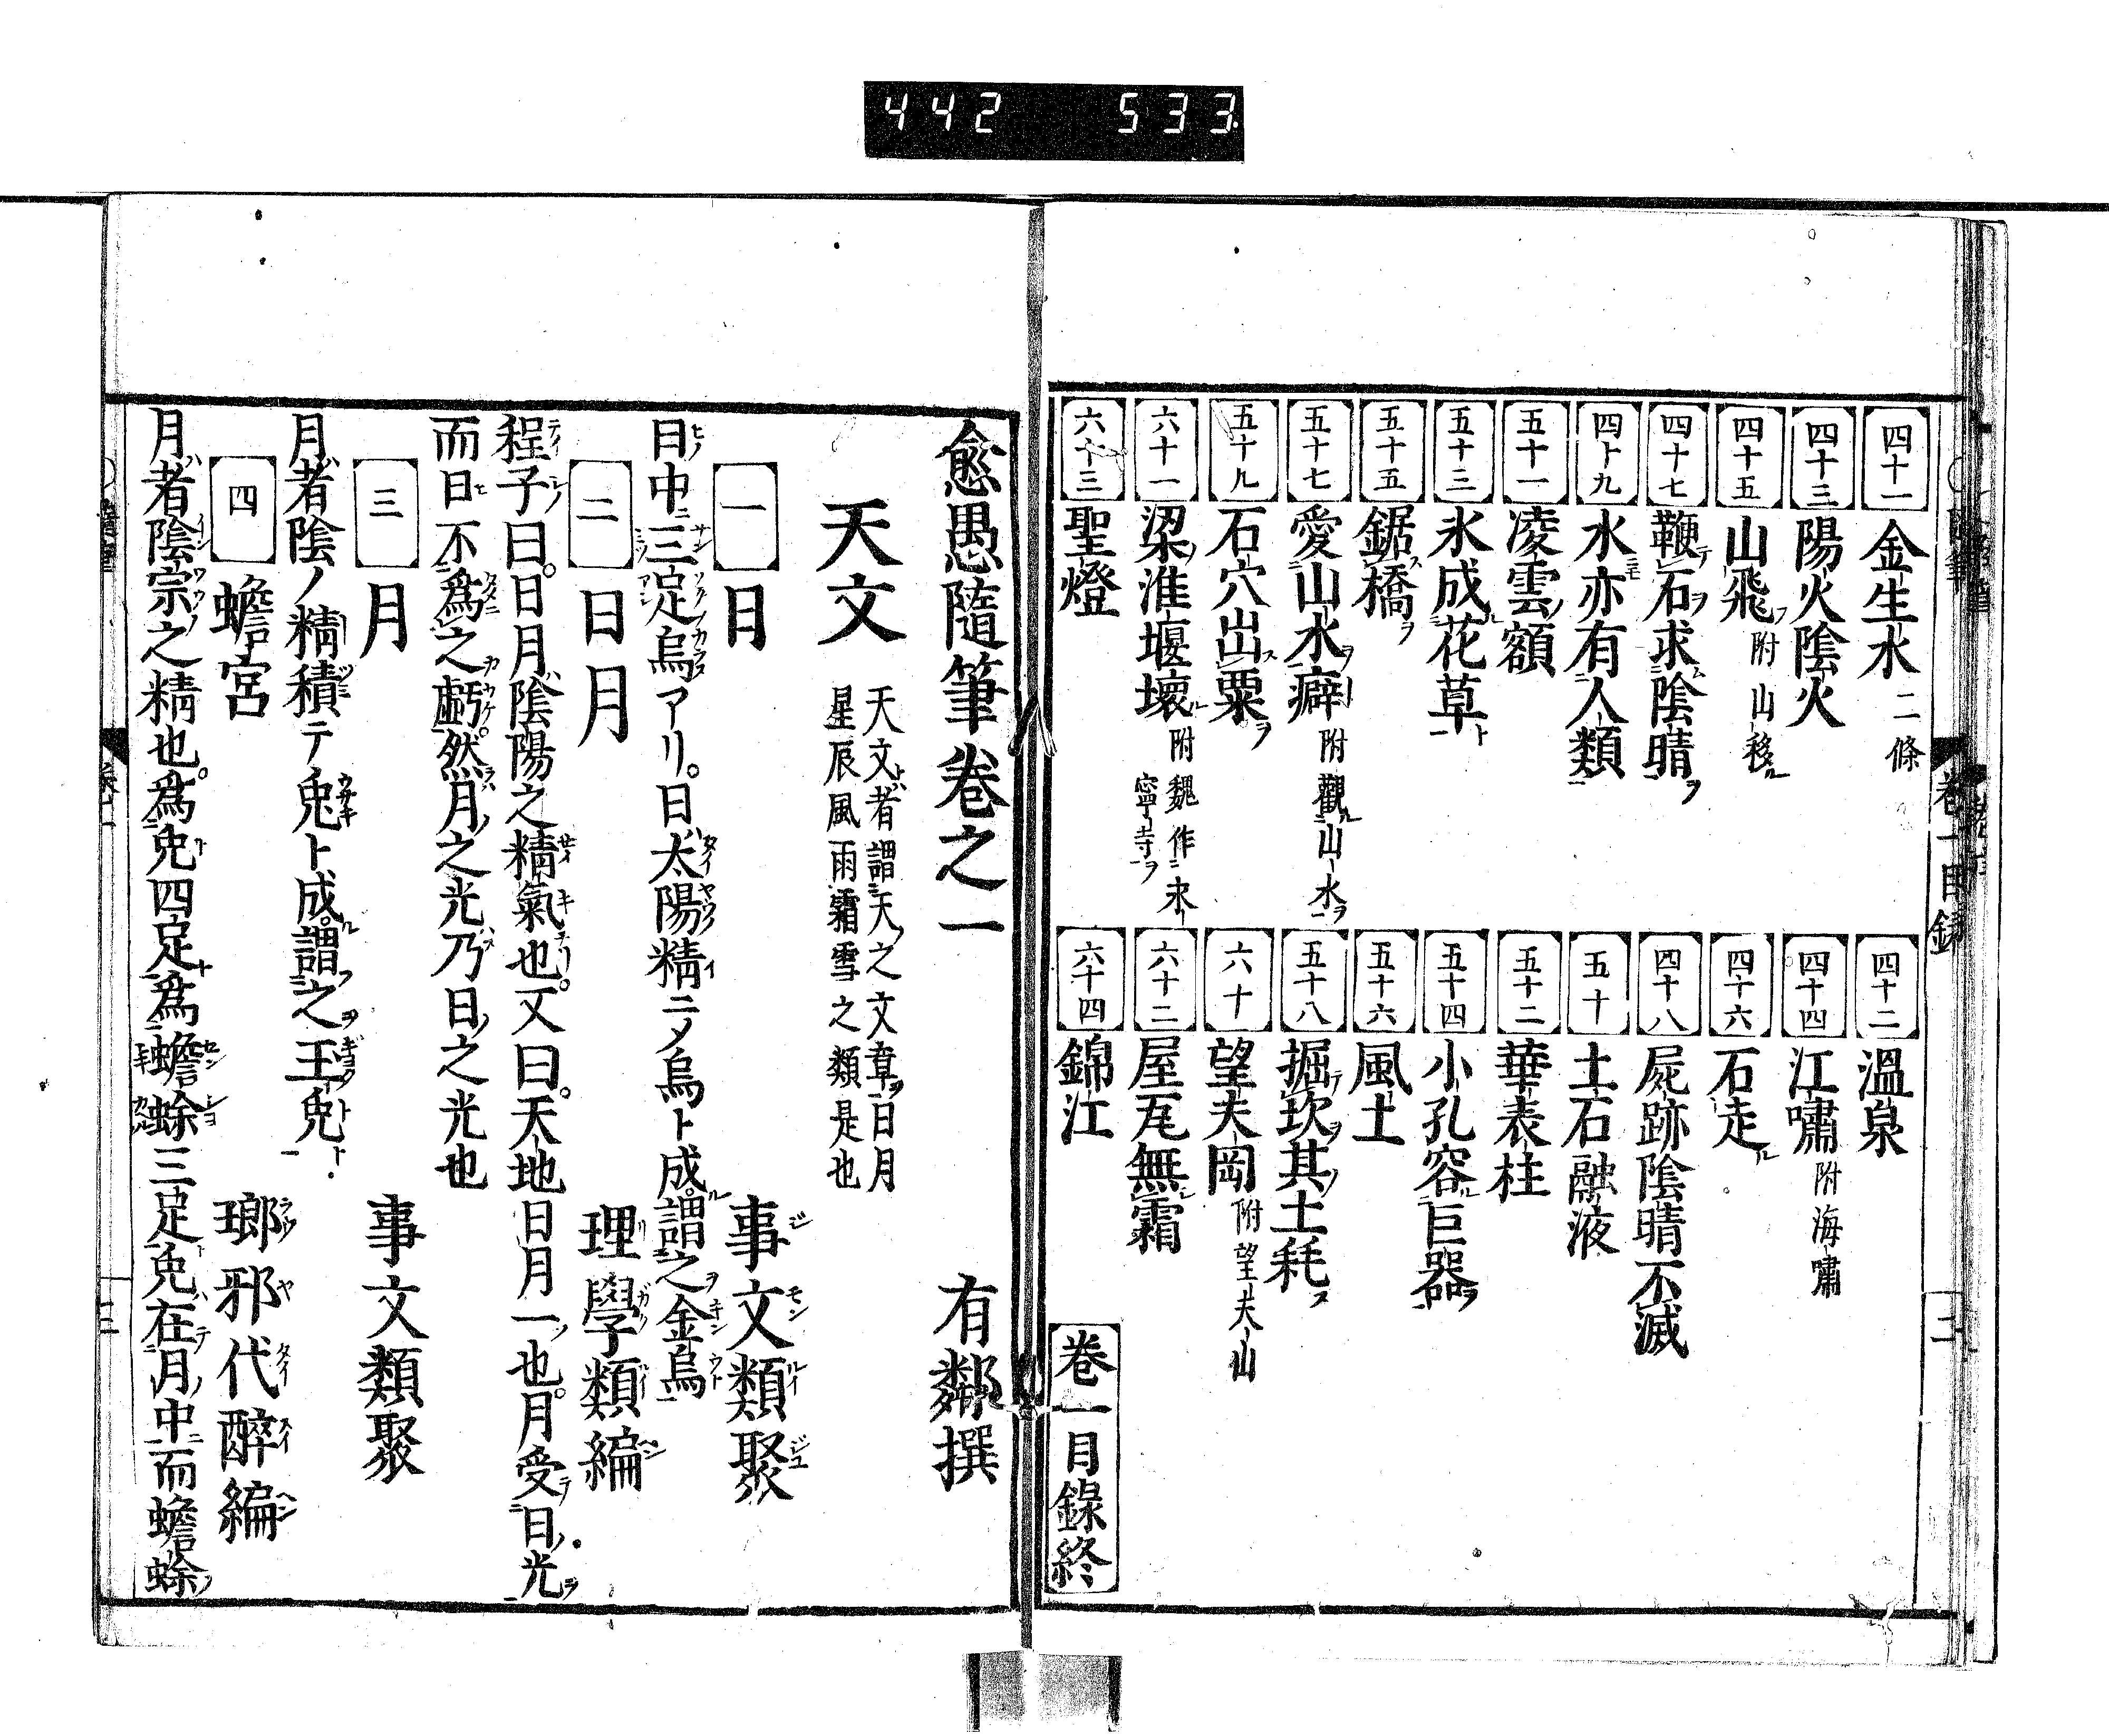 442 533
四十一 金生水 二條
四十二 溫泉
四十三 陽火陰火
四十四 江嘯 附海嘯
四十五 山飛 附山移ル
四十六 石走ル
四十七 鞭テ石ヲ求ム陰晴ヲ
四十八 屍跡陰晴不滅
四十九 水亦有人類
五十 土石融液
五十一 凌雲ノ額
五十二 華表柱
五十三 氷成ル花草ト
五十四 小孔容ル巨器ヲ
五十五 鋸ス橋ヲ
五十六 風土
五十七 愛山水ヲ癖 附觀ル山水ヲ
五十八 掘テ坎ヲ其ノ土耗ス
五十九 石穴出ス粟ヲ
六十 望夫岡 附望夫山
六十一 梁ノ淮堰壞ル 附魏作永寧寺ヲ
六十二 屋瓦無シ霜
六十三 聖燈
六十四 錦江
卷一目錄終
卷一目錄
三
愈愚隨筆卷之一
有鄰撰
天文 天文者謂天之文章日月
星辰風雨霜雪之類是也
一 日 事文類聚
日中ニ三足烏アリ。日ハ太陽精ニメ烏ト成ル。謂之ヲ金烏ト
二 日月 理學類編
程子曰。日月陰陽之精氣也。又曰。天地日月一也。月受テ日ノ光ヲ
而日不爲之虧。然月之光乃日之光也
三 月 事文類聚
月者陰ノ精積テ兎ト成ル。謂之ヲ玉兎ト
四 蟾宮 瑯邪代醉編
月者陰宗之精也。爲兎四足爲蟾蜍三足兎在月中而蟾蜍